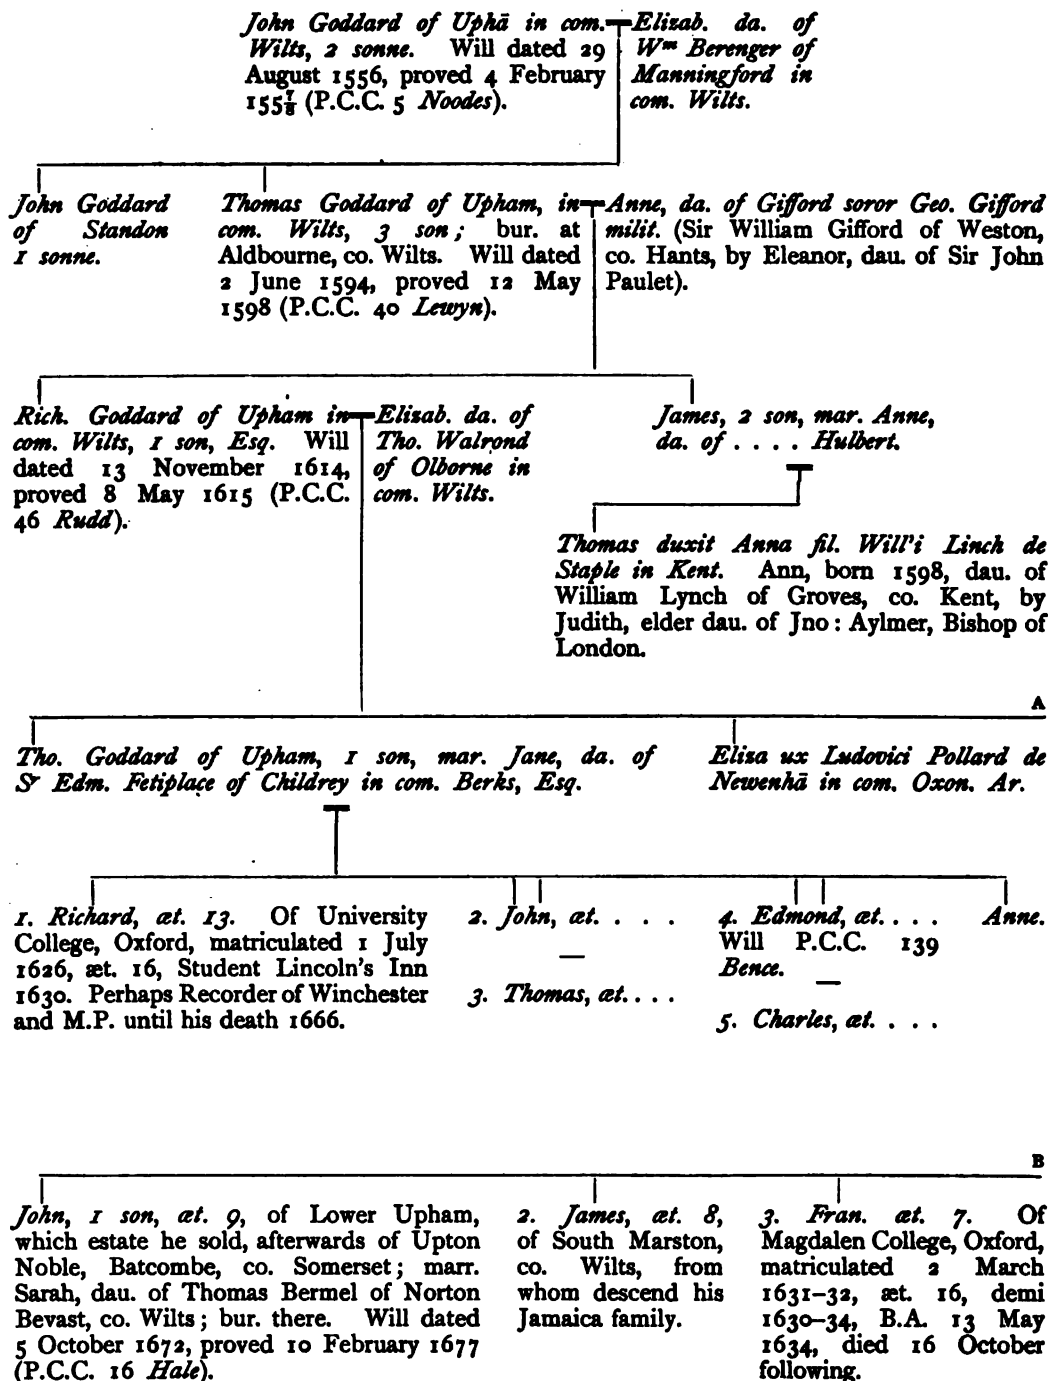 John Goddard of Uphā in com.
Wilts, 2 sonne. Will dated 29
August 1556, proved 4 February
155⅞ (P.C.C. 5 Noodes).
Elizab. da. of
Wᵐ Berenger of
Manningford in
com. Wilts.
John Goddard
of Standon
1 sonne.
Thomas Goddard of Upham, in
com. Wilts, 3 son; bur. at
Aldbourne, co. Wilts. Will dated
2 June 1594, proved 12 May
1598 (P.C.C. 40 Lewyn).
Anne, da. of Gifford soror Geo. Gifford
milit. (Sir William Gifford of Weston,
co. Hants, by Eleanor, dau. of Sir John
Paulet).
Rich. Goddard of Upham in
com. Wilts, 1 son, Esq. Will
dated 13 November 1614,
proved 8 May 1615 (P.C.C.
46 Rudd).
Elizab. da. of
Tho. Walrond
of Olborne in
com. Wilts.
James, 2 son, mar. Anne,
da. of . . . . Hulbert.
Thomas duxit Anna fil. Will'i Linch de
Staple in Kent. Ann, born 1598, dau. of
William Lynch of Groves, co. Kent, by
Judith, elder dau. of Jno: Aylmer, Bishop of
London.
A
Tho. Goddard of Upham, 1 son, mar. Jane, da. of
Sʳ Edm. Fetiplace of Childrey in com. Berks, Esq.
Eliza ux Ludovici Pollard de
Newenhā in com. Oxon. Ar.
1. Richard, æt. 13. Of University
College, Oxford, matriculated 1 July
1626, æt. 16, Student Lincoln's Inn
1630. Perhaps Recorder of Winchester
and M.P. until his death 1666.
2. John, æt. . . .
3. Thomas, æt. . . .
4. Edmond, æt. . . .
Will P.C.C. 139
Bence.
5. Charles, æt. . . .
Anne.
B
John, 1 son, æt. 9, of Lower Upham,
which estate he sold, afterwards of Upton
Noble, Batcombe, co. Somerset; marr.
Sarah, dau. of Thomas Bermel of Norton
Bevast, co. Wilts; bur. there. Will dated
5 October 1672, proved 10 February 1677
(P.C.C. 16 Hale).
2. James, æt. 8,
of South Marston,
co. Wilts, from
whom descend his
Jamaica family.
3. Fran. æt. 7. Of
Magdalen College, Oxford,
matriculated 2 March
1631–32, æt. 16, demi
1630–34, B.A. 13 May
1634, died 16 October
following.